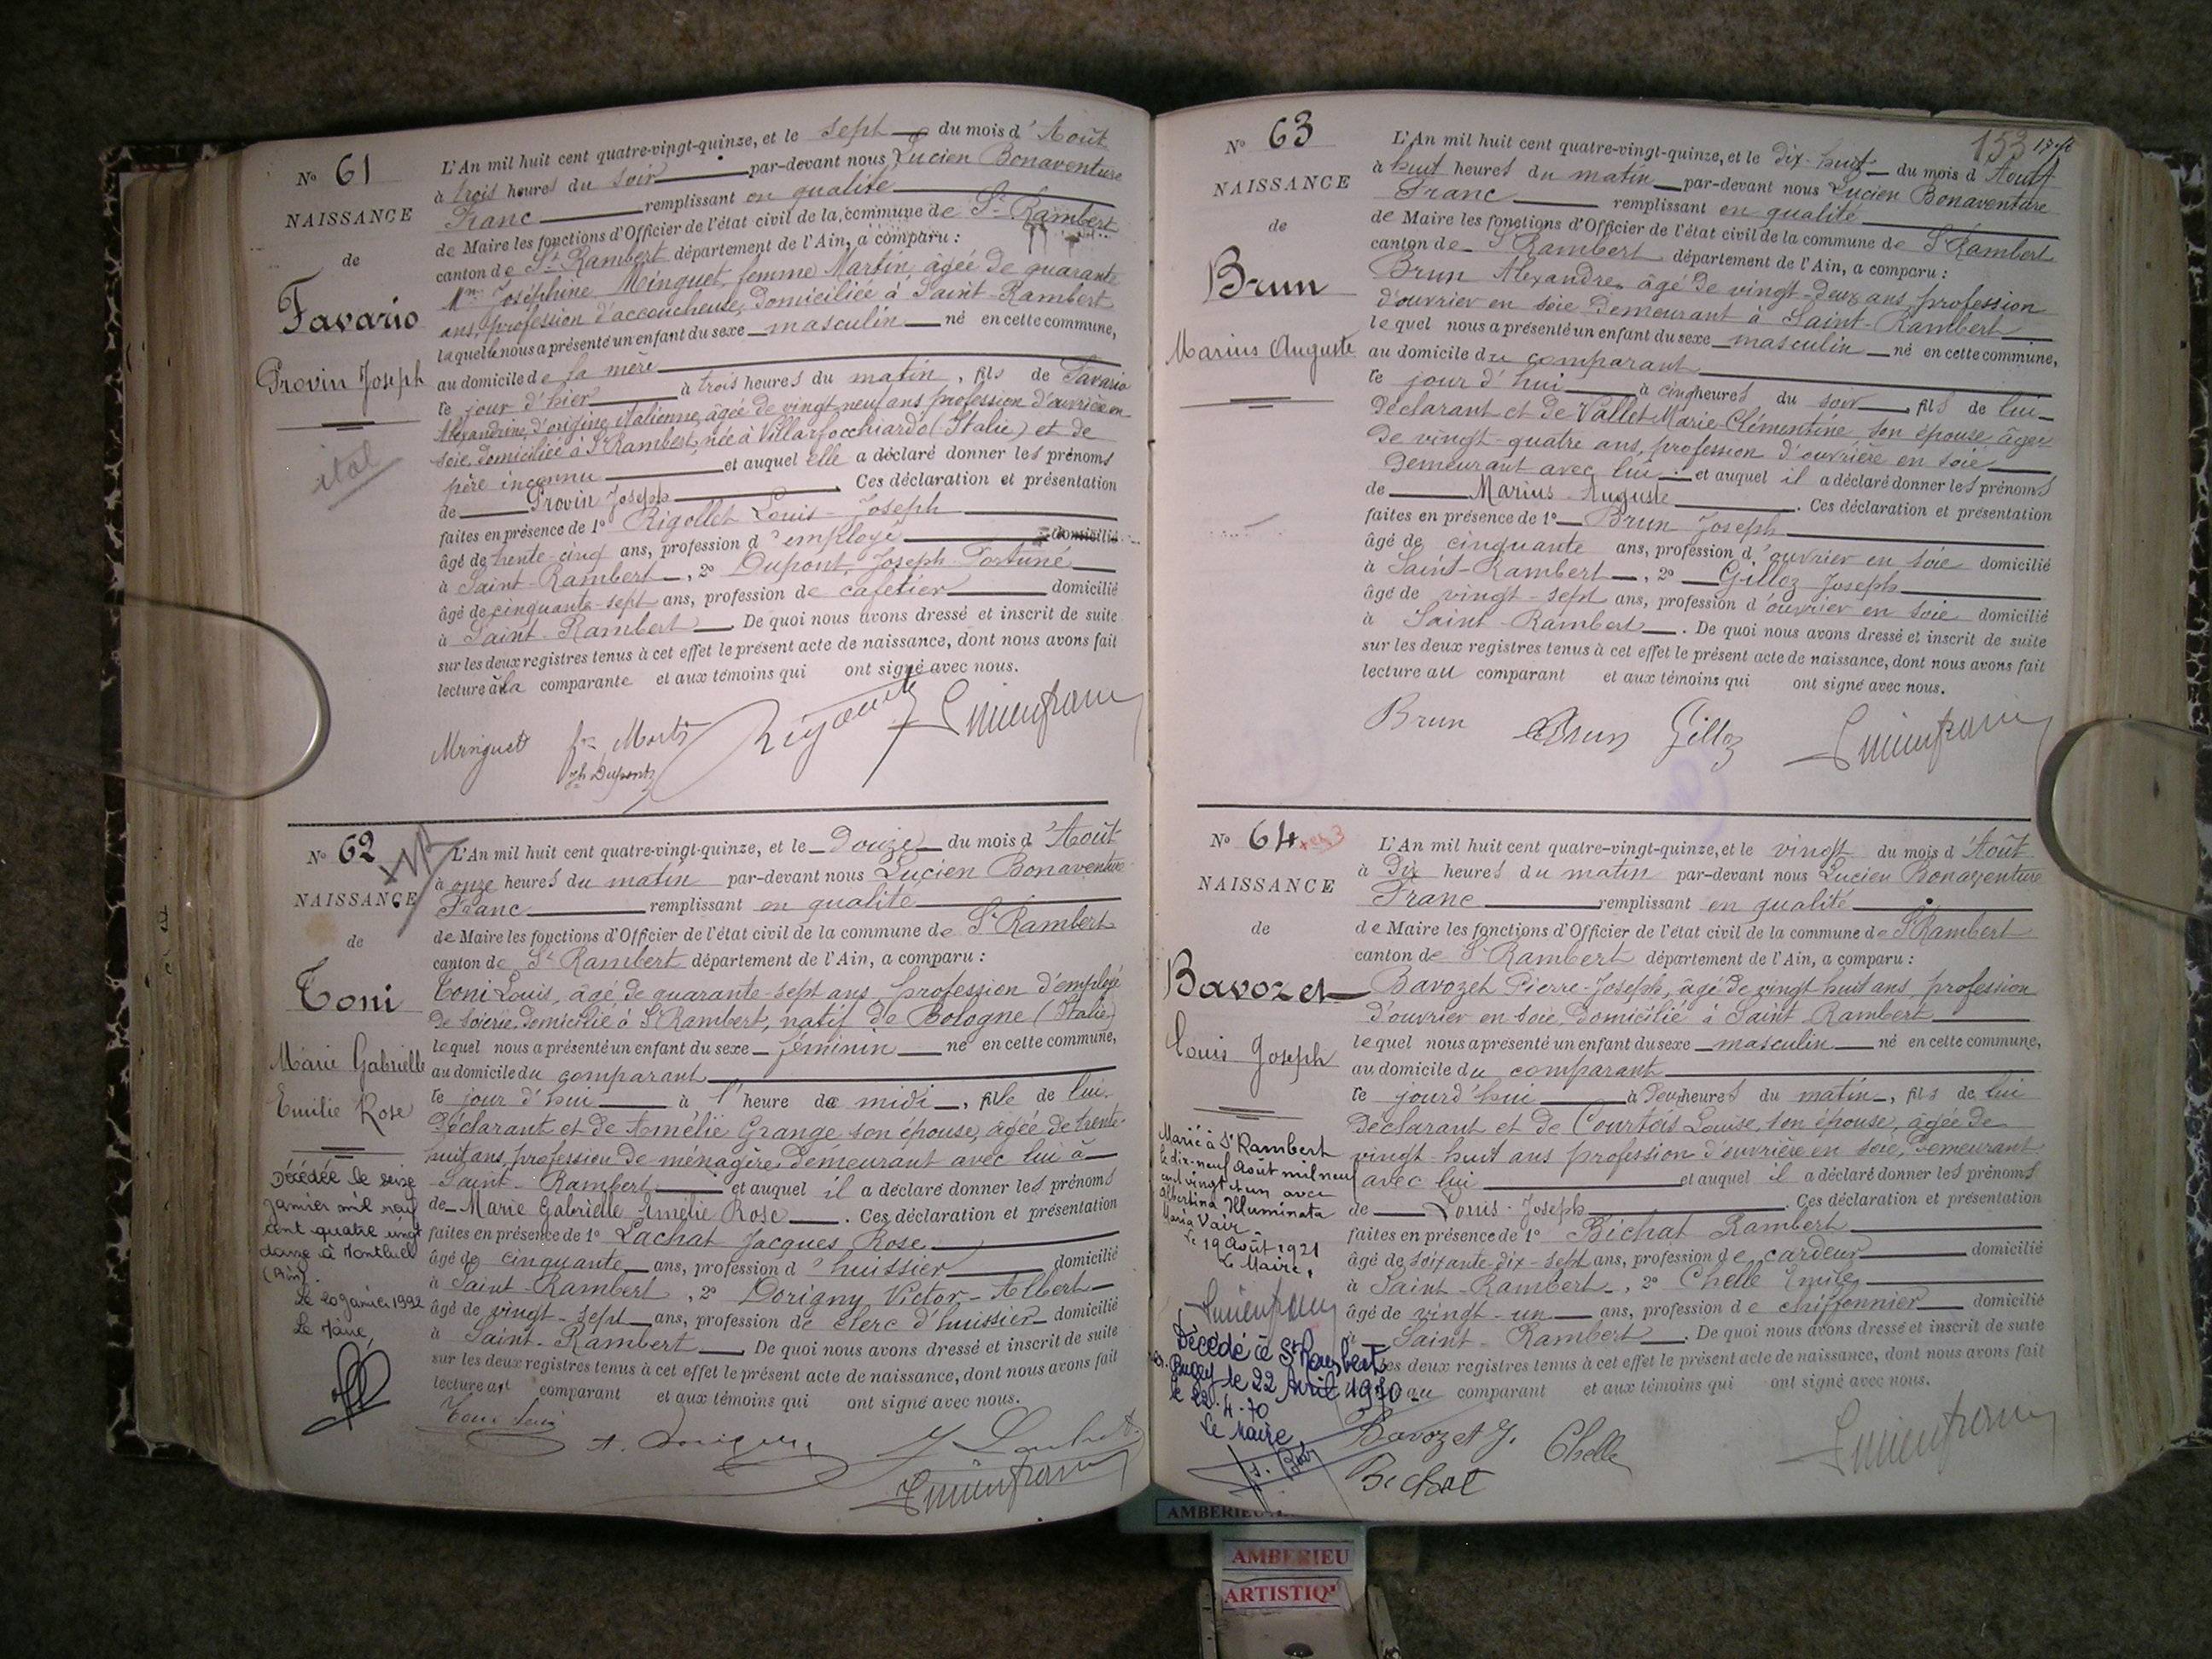 No 61
NAISSANCE
de
Favario
Provin Joseph
ital
L'An mil huit cent quatre-vingt-quinze, et le sept du mois d'Août
à trois heures du soir par-devant nous Lucien Bonaventure
Franc remplissant en qualité
de Maire les fonctions d'Officier de l'état civil de la commune de St Rambert
canton de St Rambert département de l'Ain, a comparu :
Mme Joséphine Minguet, femme Martin, âgée de quarante
ans, profession d'accoucheuse, domiciliée à Saint-Rambert
laquelle nous a présenté un enfant du sexe masculin né en cette commune,
au domicile de sa mère
le jour d'hier à trois heures du matin, fils de Favario
Alexandrine, d'origine italienne, âgée de vingt neuf ans, profession d'ouvrière en
soie, domiciliée à St Rambert, née à Villarfocchiardo (Italie) et de
père inconnu et auquel elle a déclaré donner les prénoms
de Provin Joseph. Ces déclaration et présentation
faites en présence de 1o Rigollet Louis-Joseph
âgé de trente-cinq ans, profession d'employé domicilié
à Saint-Rambert, 2o Dupont, Joseph-Fortuné
âgé de cinquante-sept ans, profession de cafetier domicilié
à Saint-Rambert. De quoi nous avons dressé et inscrit de suite
sur les deux registres tenus à cet effet le présent acte de naissance, dont nous avons fait
lecture à la comparante et aux témoins qui ont signé avec nous.
Minguet
Jh Dupont
No 62
NAISSANCE
de
Toni
Marie Gabrielle
Emilie Rose
Décédée le seize
janvier mil neuf
cent quatre vingt
douze à Montluel
(Ain).
Le 20 janvier 1992
Le Maire,
L'An mil huit cent quatre-vingt-quinze, et le Douze du mois d'Août
à onze heures du matin par-devant nous Lucien Bonaventure
Franc remplissant en qualité
de Maire les fonctions d'Officier de l'état civil de la commune de St Rambert
canton de St Rambert département de l'Ain, a comparu :
Toni Louis, âgé de quarante-sept ans, profession d'employé
de soierie, domicilié à St Rambert, natif de Bologne (Italie)
lequel nous a présenté un enfant du sexe féminin né en cette commune,
au domicile du comparant
le jour d'hui à l'heure de midi, fille de lui
déclarant et de Amélie Grange, son épouse, âgée de trente-
huit ans, profession de ménagère, demeurant avec lui à
Saint-Rambert et auquel il a déclaré donner les prénoms
de Marie Gabrielle Emélie Rose. Ces déclaration et présentation
faites en présence de 1o Lachat Jacques Rose
âgé de cinquante ans, profession d'huissier domicilié
à Saint-Rambert, 2o Dorigny Victor-Albert
âgé de vingt-sept ans, profession de clerc d'huissier domicilié
à Saint-Rambert. De quoi nous avons dressé et inscrit de suite
sur les deux registres tenus à cet effet le présent acte de naissance, dont nous avons fait
lecture au comparant et aux témoins qui ont signé avec nous.
Toni Louis
No 63
NAISSANCE
de
Brun
Marius Auguste
153
L'An mil huit cent quatre-vingt-quinze, et le dix-huit du mois d'Août
à huit heures du matin par-devant nous Lucien Bonaventure
Franc remplissant en qualité
de Maire les fonctions d'Officier de l'état civil de la commune de St Rambert
canton de St Rambert département de l'Ain, a comparu :
Brun Alexandre, âgé de vingt-deux ans, profession
d'ouvrier en soie demeurant à Saint-Rambert
lequel nous a présenté un enfant du sexe masculin né en cette commune,
au domicile du comparant
le jour d'hui à cinq heures du soir, fils de lui
déclarant et de Vallet Marie Clémentine son épouse âgée
de vingt-quatre ans, profession d'ouvrière en soie
demeurant avec lui et auquel il a déclaré donner les prénoms
de Marius-Auguste. Ces déclaration et présentation
faites en présence de 1o Brun Joseph
âgé de cinquante ans, profession d'ouvrier en soie domicilié
à Saint-Rambert, 2o Gilloz Joseph
âgé de vingt-sept ans, profession d'ouvrier en soie domicilié
à Saint-Rambert. De quoi nous avons dressé et inscrit de suite
sur les deux registres tenus à cet effet le présent acte de naissance, dont nous avons fait
lecture au comparant et aux témoins qui ont signé avec nous.
Brun Brun Gilloz
No 64
NAISSANCE
de
Bavozet
Louis Joseph
Marié à St Rambert
le dix-neuf Août mil neuf
cent vingt et un avec
Albertina Illuminata
Maria Vair
Le 19 Août 1921
Le Maire,
Décédé à St Rambert
Bugey le 22 Avril 1970
le 22.4.70
Le Maire
L'An mil huit cent quatre-vingt-quinze, et le vingt du mois d'Août
à Dix heures du matin par-devant nous Lucien Bonaventure
Franc remplissant en qualité
de Maire les fonctions d'Officier de l'état civil de la commune de St Rambert
canton de St Rambert département de l'Ain, a comparu :
Bavozet Pierre-Joseph, âgé de vingt huit ans, profession
d'ouvrier en soie, domicilié à Saint-Rambert
lequel nous a présenté un enfant du sexe masculin né en cette commune,
au domicile du comparant
le jourd'hui à deux heures du matin, fils de lui
déclarant et de Courtois Louise, son épouse, âgée de
vingt-huit ans profession d'ouvrière en soie, demeurant
avec lui et auquel il a déclaré donner les prénoms
de Louis-Joseph. Ces déclaration et présentation
faites en présence de 1o Bichat Rambert
âgé de soixante-dix-sept ans, profession de cardeur domicilié
à Saint-Rambert, 2o Chelle Emile
âgé de vingt-un ans, profession de chiffonnier domicilié
à Saint-Rambert. De quoi nous avons dressé et inscrit de suite
les deux registres tenus à cet effet le présent acte de naissance, dont nous avons fait
au comparant et aux témoins qui ont signé avec nous.
Bavozet J. Chelle
Bichat
AMBERIEU
AMBERIEU
ARTISTIQ'